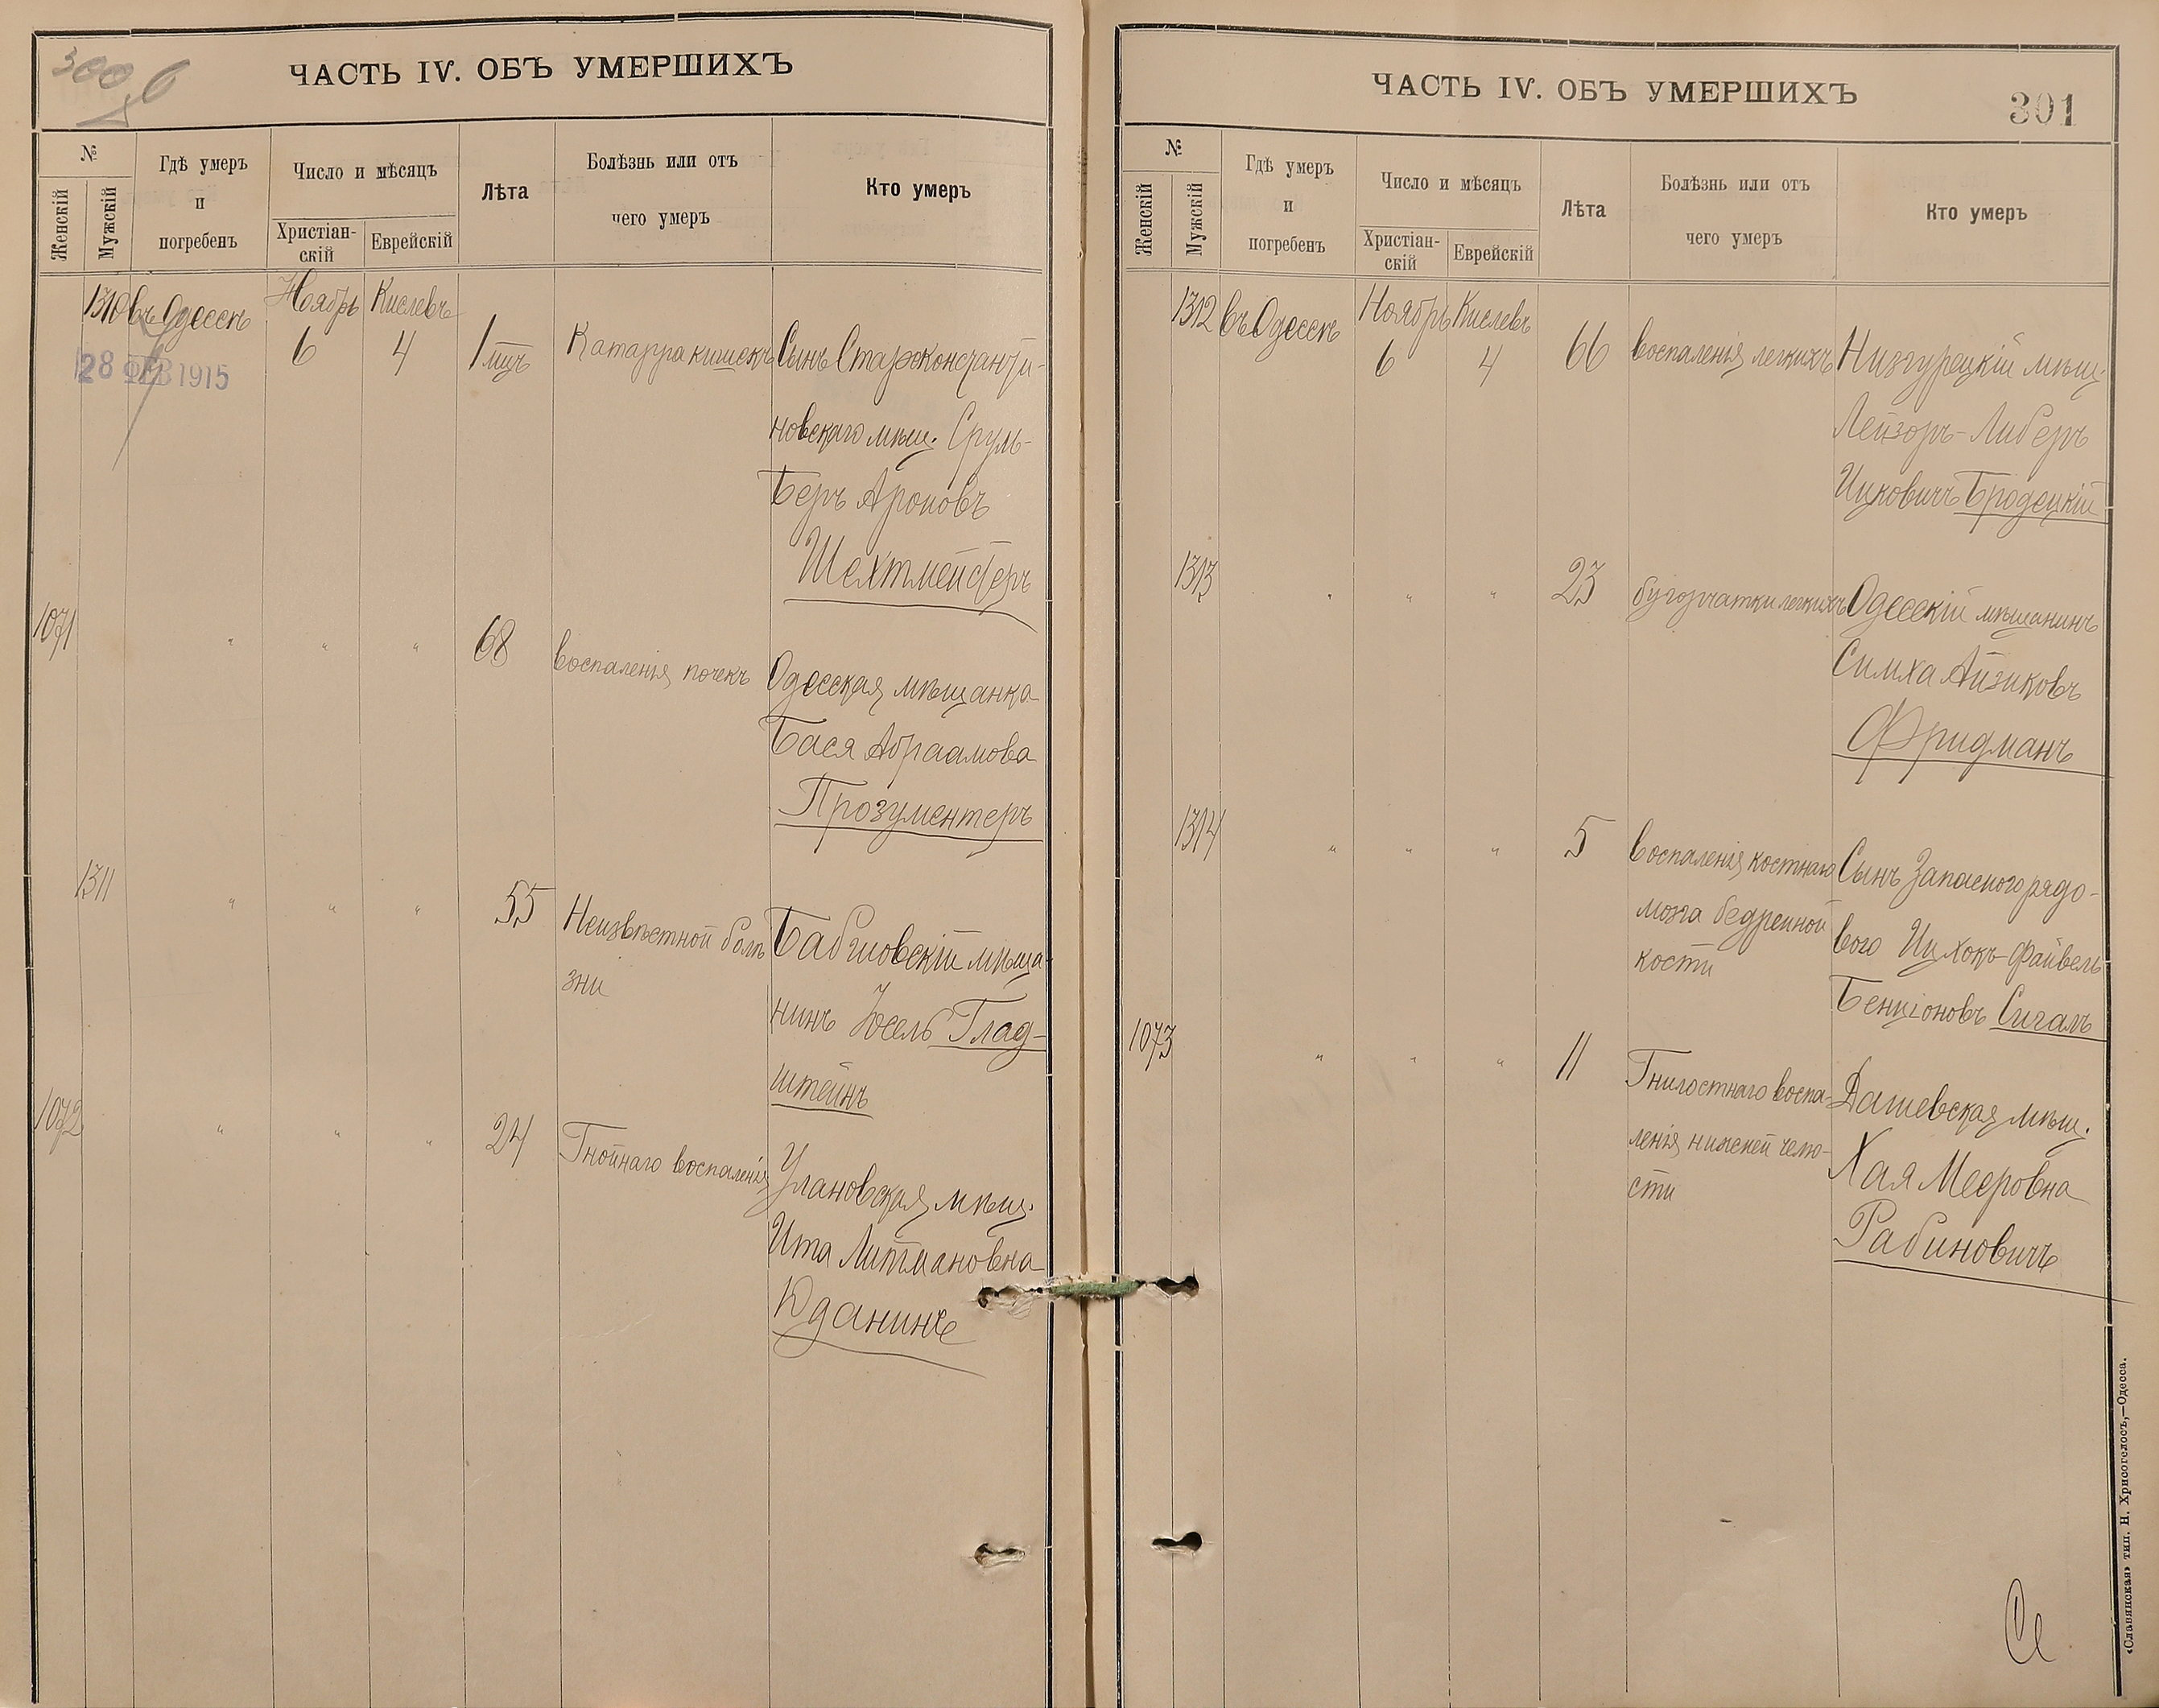 300 б
ЧАСТЬ IV. ОБЪ УМЕРШИХЪ
№
Женскій
Мужскій
Гдѣ умеръ
и
погребенъ
Число и мѣсяцъ
Христіан-
скій
Еврейскій
Лѣта
Болѣзнь или отъ
чего умеръ
Кто умеръ
1310 въ Одессѣ Ноябрь Кислевъ
6 4 1 мцъ Катарра кишекъ Сынъ Староконстанти-
новскаго мѣщ. Сруль-
Беръ Ароновъ
Шехтмейстеръ
28 ФЕВ 1915
1071 " " " 68 воспаленія почекъ Одесская мѣщанка
Бася Абраамова
Прозументеръ
1311 " " " 55 Неизвѣстной болѣ Бабчиовскій мѣща-
зни нинъ Іосель Глад-
штейнъ
1072 " " " 24 Гнойнаго воспаленія Улановская мѣщ.
Ита Литмановна
Юданинъ
ЧАСТЬ IV. ОБЪ УМЕРШИХЪ
301
№
Женскій
Мужскій
Гдѣ умеръ
и
погребенъ
Число и мѣсяцъ
Христіан-
скій
Еврейскій
Лѣта
Болѣзнь или отъ
чего умеръ
Кто умеръ
1312 въ Одессѣ Ноябрь Кислевъ
6 4 66 воспаленія легкихъ Низгурецкій мѣщ.
Лейзоръ-Либеръ
Ицковичъ Бродецкій
1313 " " " 23 бугорчатки легкихъ Одесскій мѣщанинъ
Симха Айзиковъ
Фридманъ
1314 " " " 5 воспаленія костнаго Сынъ Запасного рядо-
мозга бедренной вого Ицхокъ-Файвель
кости Бенціоновъ Сигалъ
1073 " " " 11 Гнилостнаго воспа- Дашевская мѣщ.
ленія нижней челю- Хая Мееровна
сти Рабиновичъ
«Славянская» тип. Н. Хрисогелосъ,—Одесса.